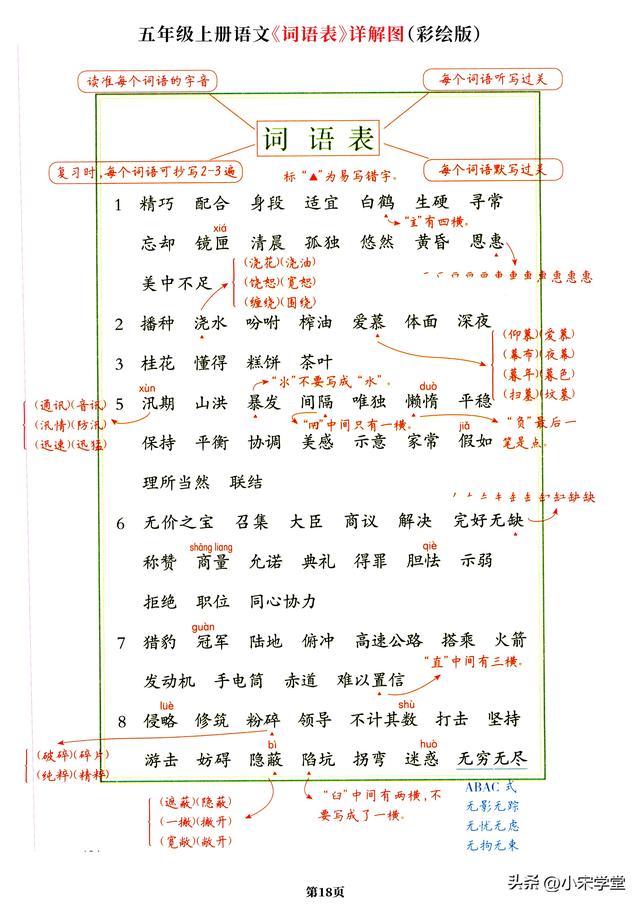 五年级上册语文《词语表》详解图(彩绘版)
读准每个词语的字音
每个词语听写过关
词 语 表
复习时,每个词语可抄写2-3遍
每个词语默写过关
标“▲”为易写错字。
1 精巧 配合 身段 适宜 白鹤 生硬 寻常
“主”有四横。
xiá
忘却 镜匣 清晨 孤独 悠然 黄昏 恩惠
美中不足
(浇花)(浇油)
(饶恕)(宽恕)
(缠绕)(围绕)
2 播种 浇水 吩咐 榨油 爱慕 体面 深夜
(仰慕)(爱慕)
(幕布)(夜幕)
(暮年)(暮色)
(扫墓)(坟墓)
3 桂花 懂得 糕饼 茶叶
“氺”不要写成“水”。
xùn duò
5 汛期 山洪 暴发 间隔 唯独 懒惰 平稳
(通讯)(音讯)
(汛情)(防汛)
(迅速)(迅猛)
中间只有一横。
“负”最后一
笔是点。
jiǎ
保持 平衡 协调 美感 示意 家常 假如
理所当然 联结
6 无价之宝 召集 大臣 商议 解决 完好无缺
shāng liang qiè
称赞 商量 允诺 典礼 得罪 胆怯 示弱
拒绝 职位 同心协力
guàn
7 猎豹 冠军 陆地 俯冲 高速公路 搭乘 火箭
“直”中间有三横。
发动机 手电筒 赤道 难以置信
lüè shù
8 侵略 修筑 粉碎 领导 不计其数 打击 坚持
(破碎)(碎片)
(纯粹)(精粹)
bì huò
游击 妨碍 隐蔽 陷坑 拐弯 迷惑 无穷无尽
(遮蔽)(隐蔽)
(一撇)(撇开)
(宽敞)(敞开)
“臼”中间有两横,不
要写成了一横。
ABAC 式
无影无踪
无忧无虑
无拘无束
第18页
头条 @小宋学堂